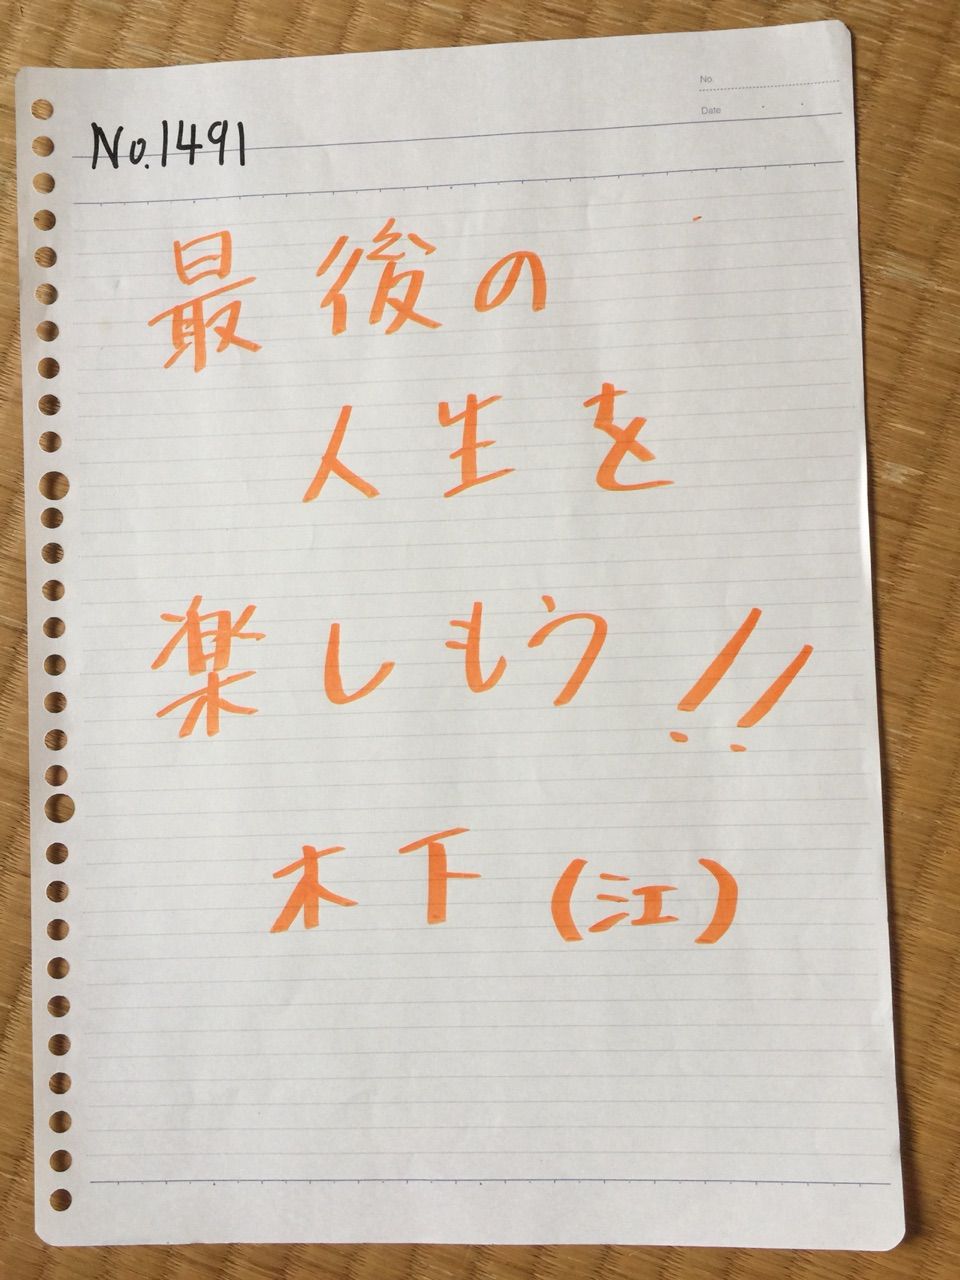 No
Date
No.1491
最後の
人生を
楽しもう!!
木下(江)